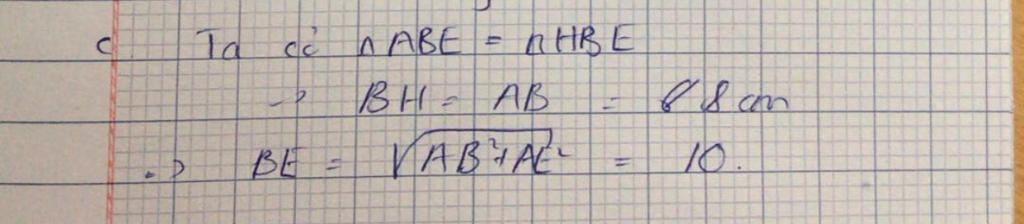 c. Ta có ∆ABE = ∆HBE
→ BH = AB = 8 cm
→ BE = √AB²+AE² = 10.